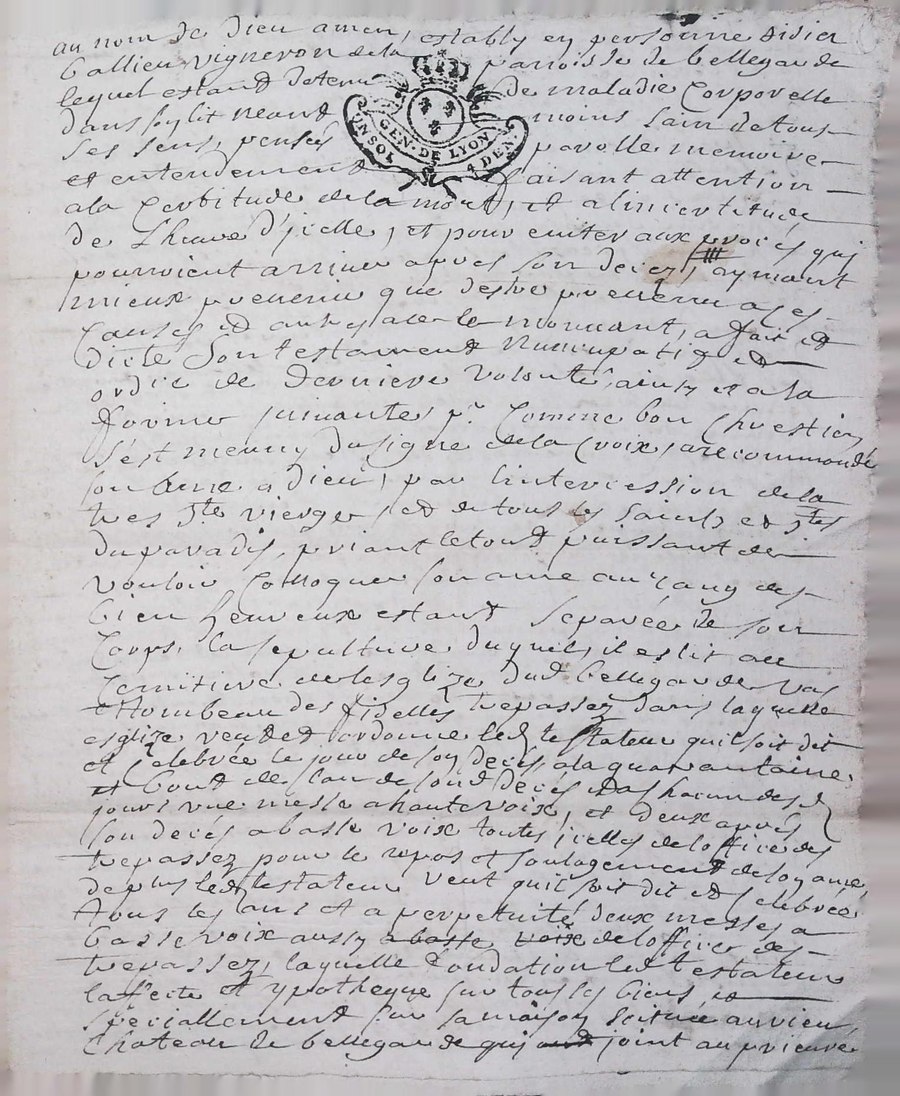 au nom de Dieu amen, estably en personne Disier
Gallien vigneron de la parroisse de bellegarde
lequel estand detenu de maladie Corporelle
dans son lit neant moins sain de tous
ses sens, pensée parolle memoire
et entendement faisant attention
a la Certitude de la mort, et a lincertitude
de Lheure d'jcelle, et pour eviter aux procés qui
pourroient arriver apres son decez, aymant
mieux prevenir que destre prevenu a ces
Causes et autres a ce le mouvant, a fait et
dicté son testament Nuncupatif et
ordre de derniere volonté, ainsy et a la
forme suivante, pr. Comme bon Chrestien
s'est meuny du signe de la Croix, a recommandé
son ame a Dieu, par lintercession de la
tres Ste vierge, et de tous les saints et stes
du paradis, priant le tout puissant de
vouloir Colloquer son ame au rang des
bien heureux estant separée de son
Corps, la sepulture duquel il eslit au
Cemitiere de lesglize dud bellegarde vas
et tombeau des fidelles trepassez dans laquelle
esglize veut et ordonne led testateur quil soit dit
et Celebrée le jour de son decés, a la quarantaine
et bout de lan de sond decés et a Chacun desd
jours une messe a haute voix, et deux aprés
son decés a basse voix toutes jcelles de loffice des
trepassez pour le repos et soulagement de son ame
de plus led testateur veut quil soit dit et Celebrée
tous les ans et a perpetuité deux messes a
basse voix aussy a basse voix de loffice des
trepassez, laquelle fondation led testateur
laffecte et ypotheque sur tous ses biens, et
speciallement sur sa maison scituée au vieu
Chateau de bellegarde qui joint au prieuré
GEN. DE LYON
UN SOL 4 DEN